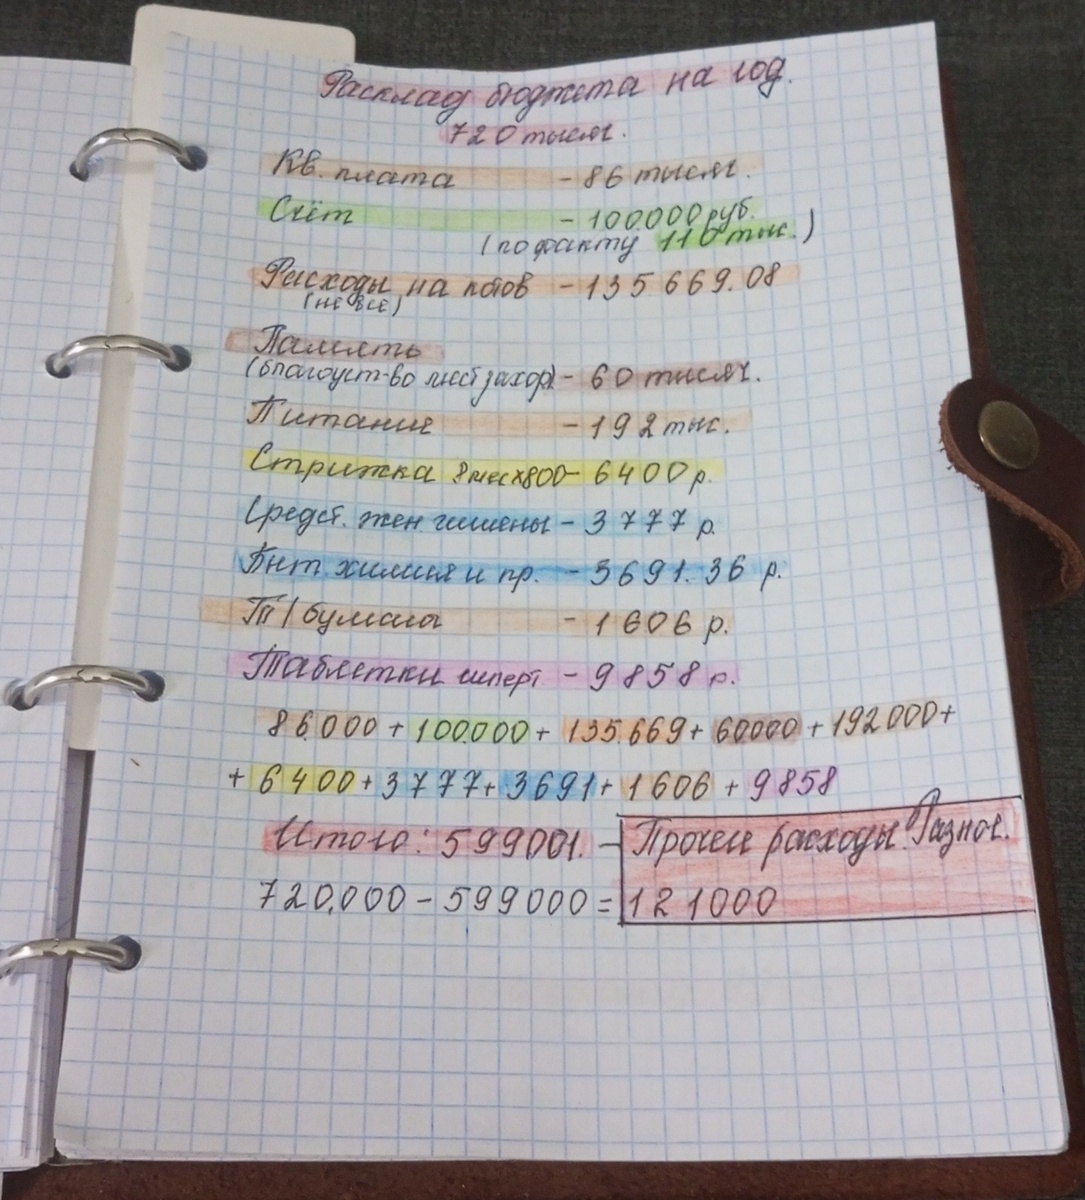 Расклад бюджета на год.
720 тысяч.
Кв. плата - 86 тысяч.
Счёт - 100.000 руб.
(по факту 110 тыс.)
Расходы на котов - 135 669.08
(не все)
Память
(благоуст-во мест захор) - 60 тысяч.
Питание - 192 тыс.
Стрижка 8 мес х 800 - 6400 р.
Средст. жен гигиены - 3777 р.
Быт. химия и пр. - 3691.36 р.
Т/бумага - 1606 р.
Таблетки гиперт - 9858 р.
86.000 + 100.000 + 135.669 + 60000 + 192000 +
+ 6400 + 3777 + 3691 + 1606 + 9858
Итого: 599001. - Прочие расходы. Разное.
720.000 - 599000 = 121000